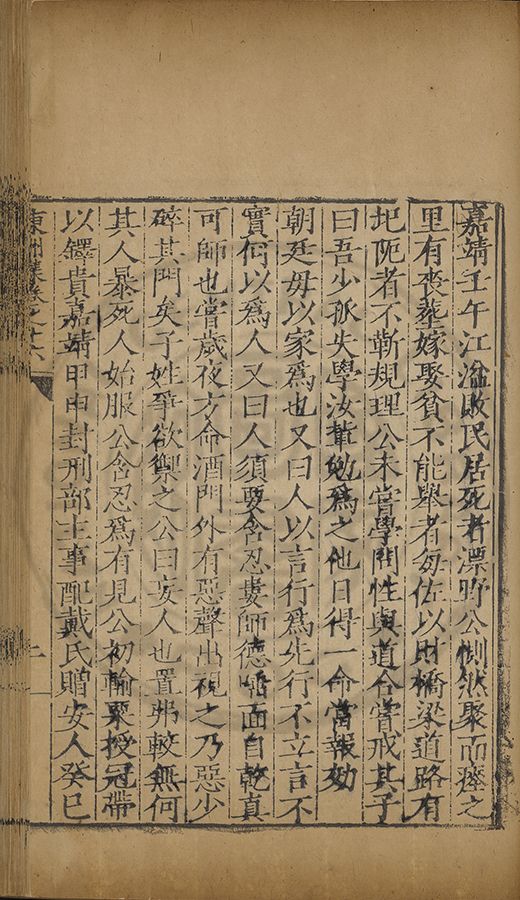 嘉靖壬午江溢敗民居死者漂野公惻然聚而瘞之
里有喪葬嫁娶貧不能舉者每佐以財橋梁道路有
圮阨者不靳規理公未嘗學問性與道合嘗戒其子
曰吾少孤失學汝輩勉爲之他日得一命當報効
朝廷毋以家爲也又曰人以言行爲先行不立言不
實何以爲人又曰人須要含忍婁師德唾面自乾真
可師也嘗歲夜方命酒門外有惡聲出視之乃惡少
碎其門矣子姓爭欲禦之公曰妄人也置弗較無何
其人暴死人始服公含忍爲有見公初輸粟授冠帶
以鐸貴嘉靖甲申封刑部主事配戴氏贈安人癸巳
東洲集卷之十六